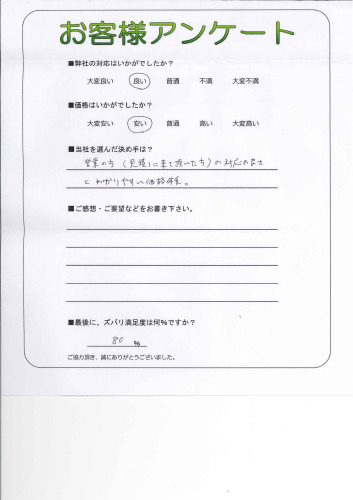 お客様アンケート
■弊社の対応はいかがでしたか？
大変良い 良い 普通 不満 大変不満
■価格はいかがでしたか？
大変安い 安い 普通 高い 大変高い
■当社を選んだ決め手は？
営業の方（見積りに来て頂いた方）の対応の良さ
とわかりやすい価格
■ご感想・ご要望などをお書き下さい。
■最後に、ズバリ満足度は何%ですか？
80 %
ご協力頂き、誠にありがとうございました。